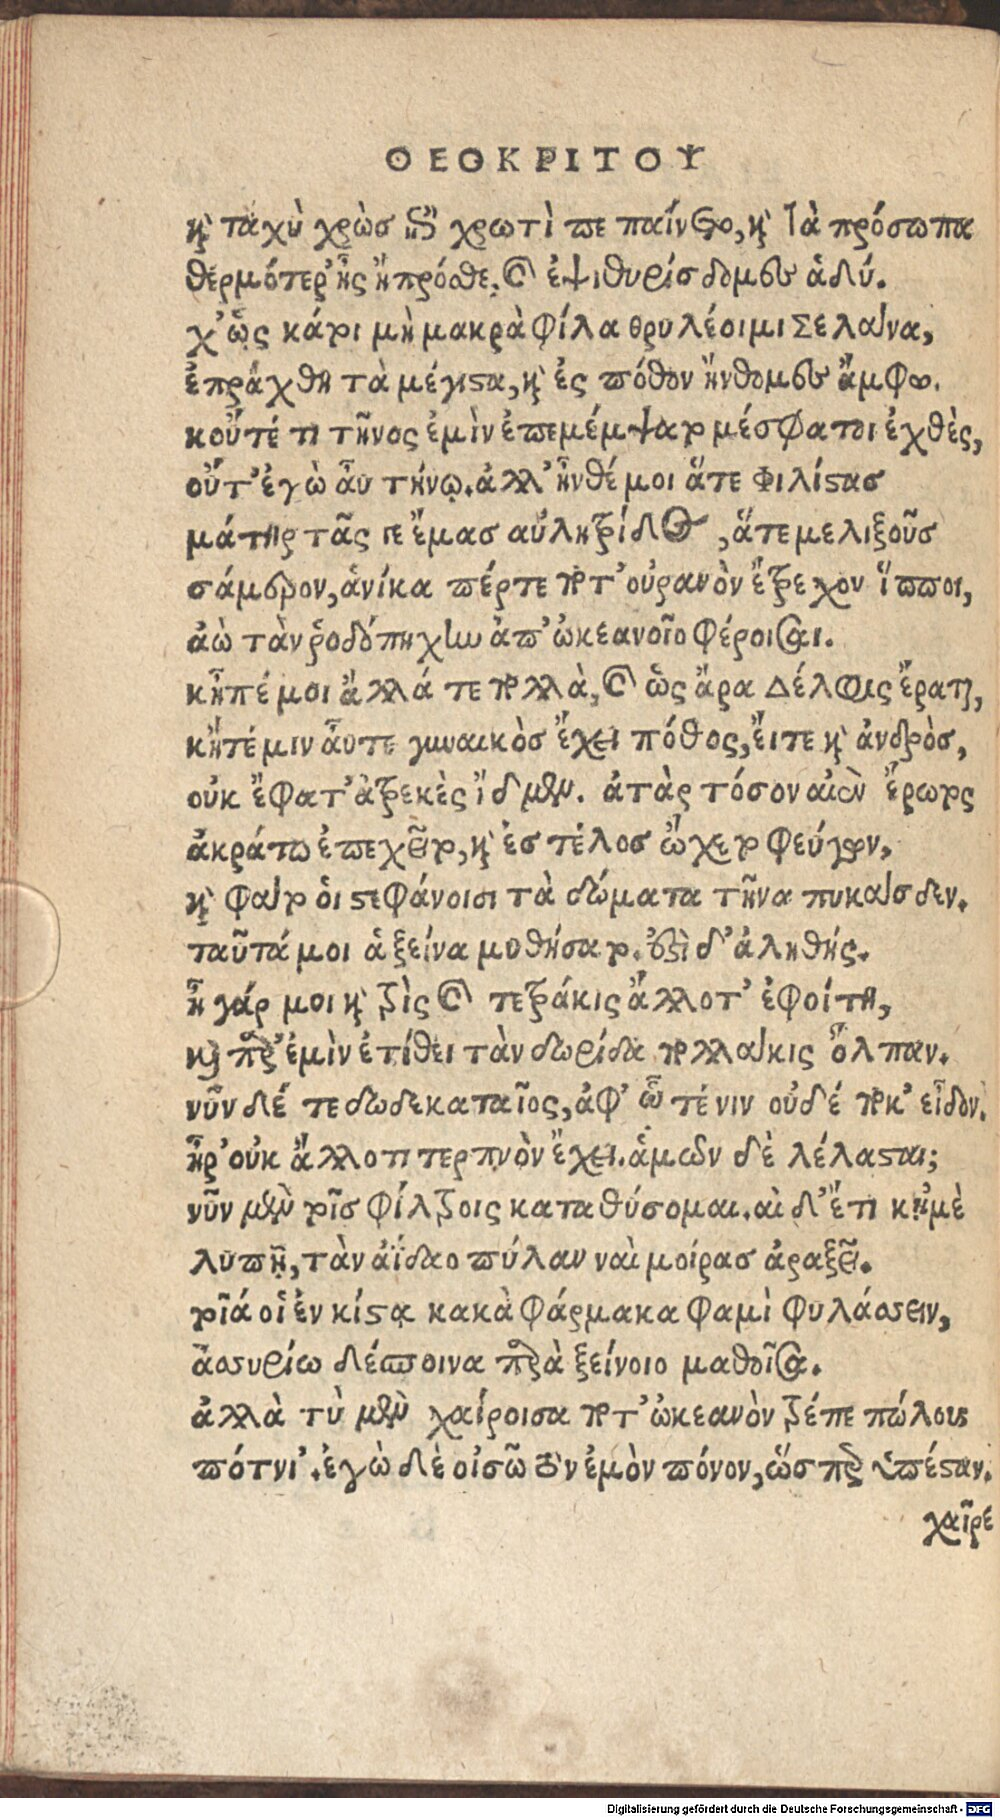 ΘΕΟΚΡΙΤΟΥ
καὶ ταχὺ χρὼσ ἐπὶ χρωτὶ πεπαίνετο, καὶ τὰ πρόσωπα
θερμότερ' ἦς ἢ πρόσθε, καὶ ἐψιθυρίσδομες ἁδύ.
χ' ὥς κά τοι μὴ μακρὰ φίλα θρυλέοιμι Σελαίνα,
ἐπράχθη τὰ μέγιστα, καὶ ἐς πόθον ἤνθομες ἄμφω.
κοὔτέ τι τῆνος ἐμὶν ἐπεμέμψατο μέσφα τοι ἐχθὲς,
οὔτ' ἐγὼ αὖ τήνῳ. ἀλλ' ἦνθέ μοι ἅτε Φιλίστας
μάτηρ τᾶς γε ἔμασ αὐλητρίδος, ἅτε μελιξοῦσ
σάμερον, ἁνίκα πέρ τε ποτ' οὐρανὸν ἔτρεχον ἵπποι,
ἀὼ τὰν ῥοδόπηχυν ἀπ' ὠκεανοῖο φέροισαι.
κἦπέ μοι ἄλλά τε πολλὰ, καὶ ὡς ἄρα Δέλφις ἔραται,
κἤτέ μιν αὖτε γυναικὸσ ἔχει πόθος, εἴτε καὶ ἀνδρὸσ,
οὐκ ἔφατ' ἀτρεκὲς ἴδμεν. ἀτὰρ τόσον αἰὲν ἔρωτς
ἀκράτω ἐπεχεῖτο, καὶ ἐσ τέλοσ ᾤχετο φεύγων,
καὶ φαῖτο οἱ στεφάνοισι τὰ δώματα τῆνα πυκαίσδεν.
ταῦτά μοι ἁ ξείνα μυθήσατο. ἔστι δ' ἀληθής.
ἦ γάρ μοι καὶ τρὶς καὶ τετράκις ἄλλοτ' ἐφοίτη,
καὶ παρ' ἐμὶν ἐτίθει τὰν δωρίδα πολλάκις ὄλπαν.
νῦν δέ τε δωδεκαταῖος, ἀφ' ὧ τέ νιν οὐδέ ποκ' εἶδον.
ἦρ' οὐκ ἄλλο τι τερπνὸν ἔχει. ἁμῶν δὲ λέλασται;
νῦν μὲν τοῖσ φίλτροις καταθύσομαι. αἰ δ' ἔτι κἠμὲ
λυπῇ, τὰν ἀΐδαο πύλαν ναὶ μοίρασ ἀραξεῖ.
τοῖά οἱ ἐν κίστᾳ κακὰ φάρμακα φαμὶ φυλάσσειν,
ἀσσυρίω δέσποινα παρὰ ξείνοιο μαθοῖσα.
ἀλλὰ τὺ μὲν χαίροισα ποτ' ὠκεανὸν τρέπε πώλους
πότνι'. ἐγὼ δὲ οἰσῶ τὸν ἐμὸν πόνον, ὥσπερ ὑπέσταν.
χαῖρε